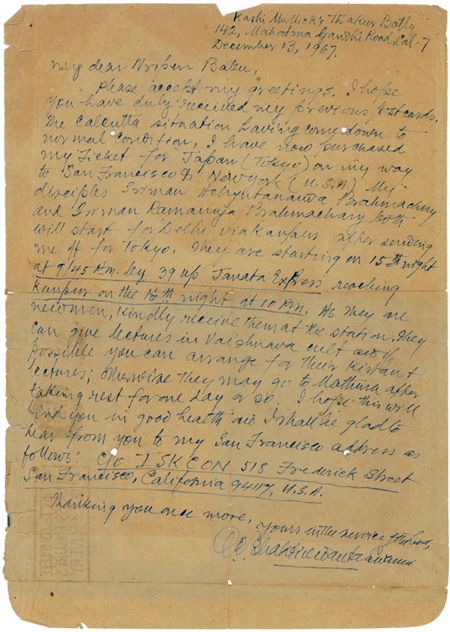 Kashi Mullick's Thakur Batty
142, Mahatma Gandhi Road, Cal-7
December 13, 1967.
My dear Nripen Babu,
Please accept my greetings. I hope
you have duly received my previous postcards.
The Calcutta situation having come down to
normal condition, I have now purchased
my ticket for Japan (Tokyo) on my way
to San Francisco & New York (U.S.A) My
disciples Sriman Achyutananda Brahmachary
and Sriman Ramanuja Brahmachary both
will start for Delhi via Kanpur after sending
me off for Tokyo. They are starting on 15th night
at 9/45 P.m. by 39 up Janata Express reaching
Kanpur on the 16th night at 10 P.m. As they are
new men, kindly receive them at the station. They
can give lectures in Vaishnava cult and if
possible you can arrange for their Kirtan &
lectures; otherwise they may go to Mathura after
taking rest for one day or so. I hope this will
find you in good health and I shall be glad to
hear from you to my San Francisco address as
follows: C/o ISKCON 518 Frederick Street
San Francisco, California 94117, U.S.A.
Thanking you once more,
yours in the service of the Lord,
A.C. Bhaktivedanta Swami